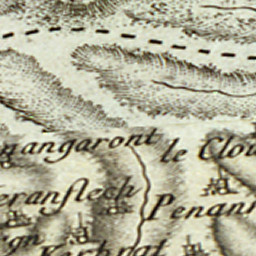 nangaront
le Clou
eranflech
Penann
gn
Kerbrat